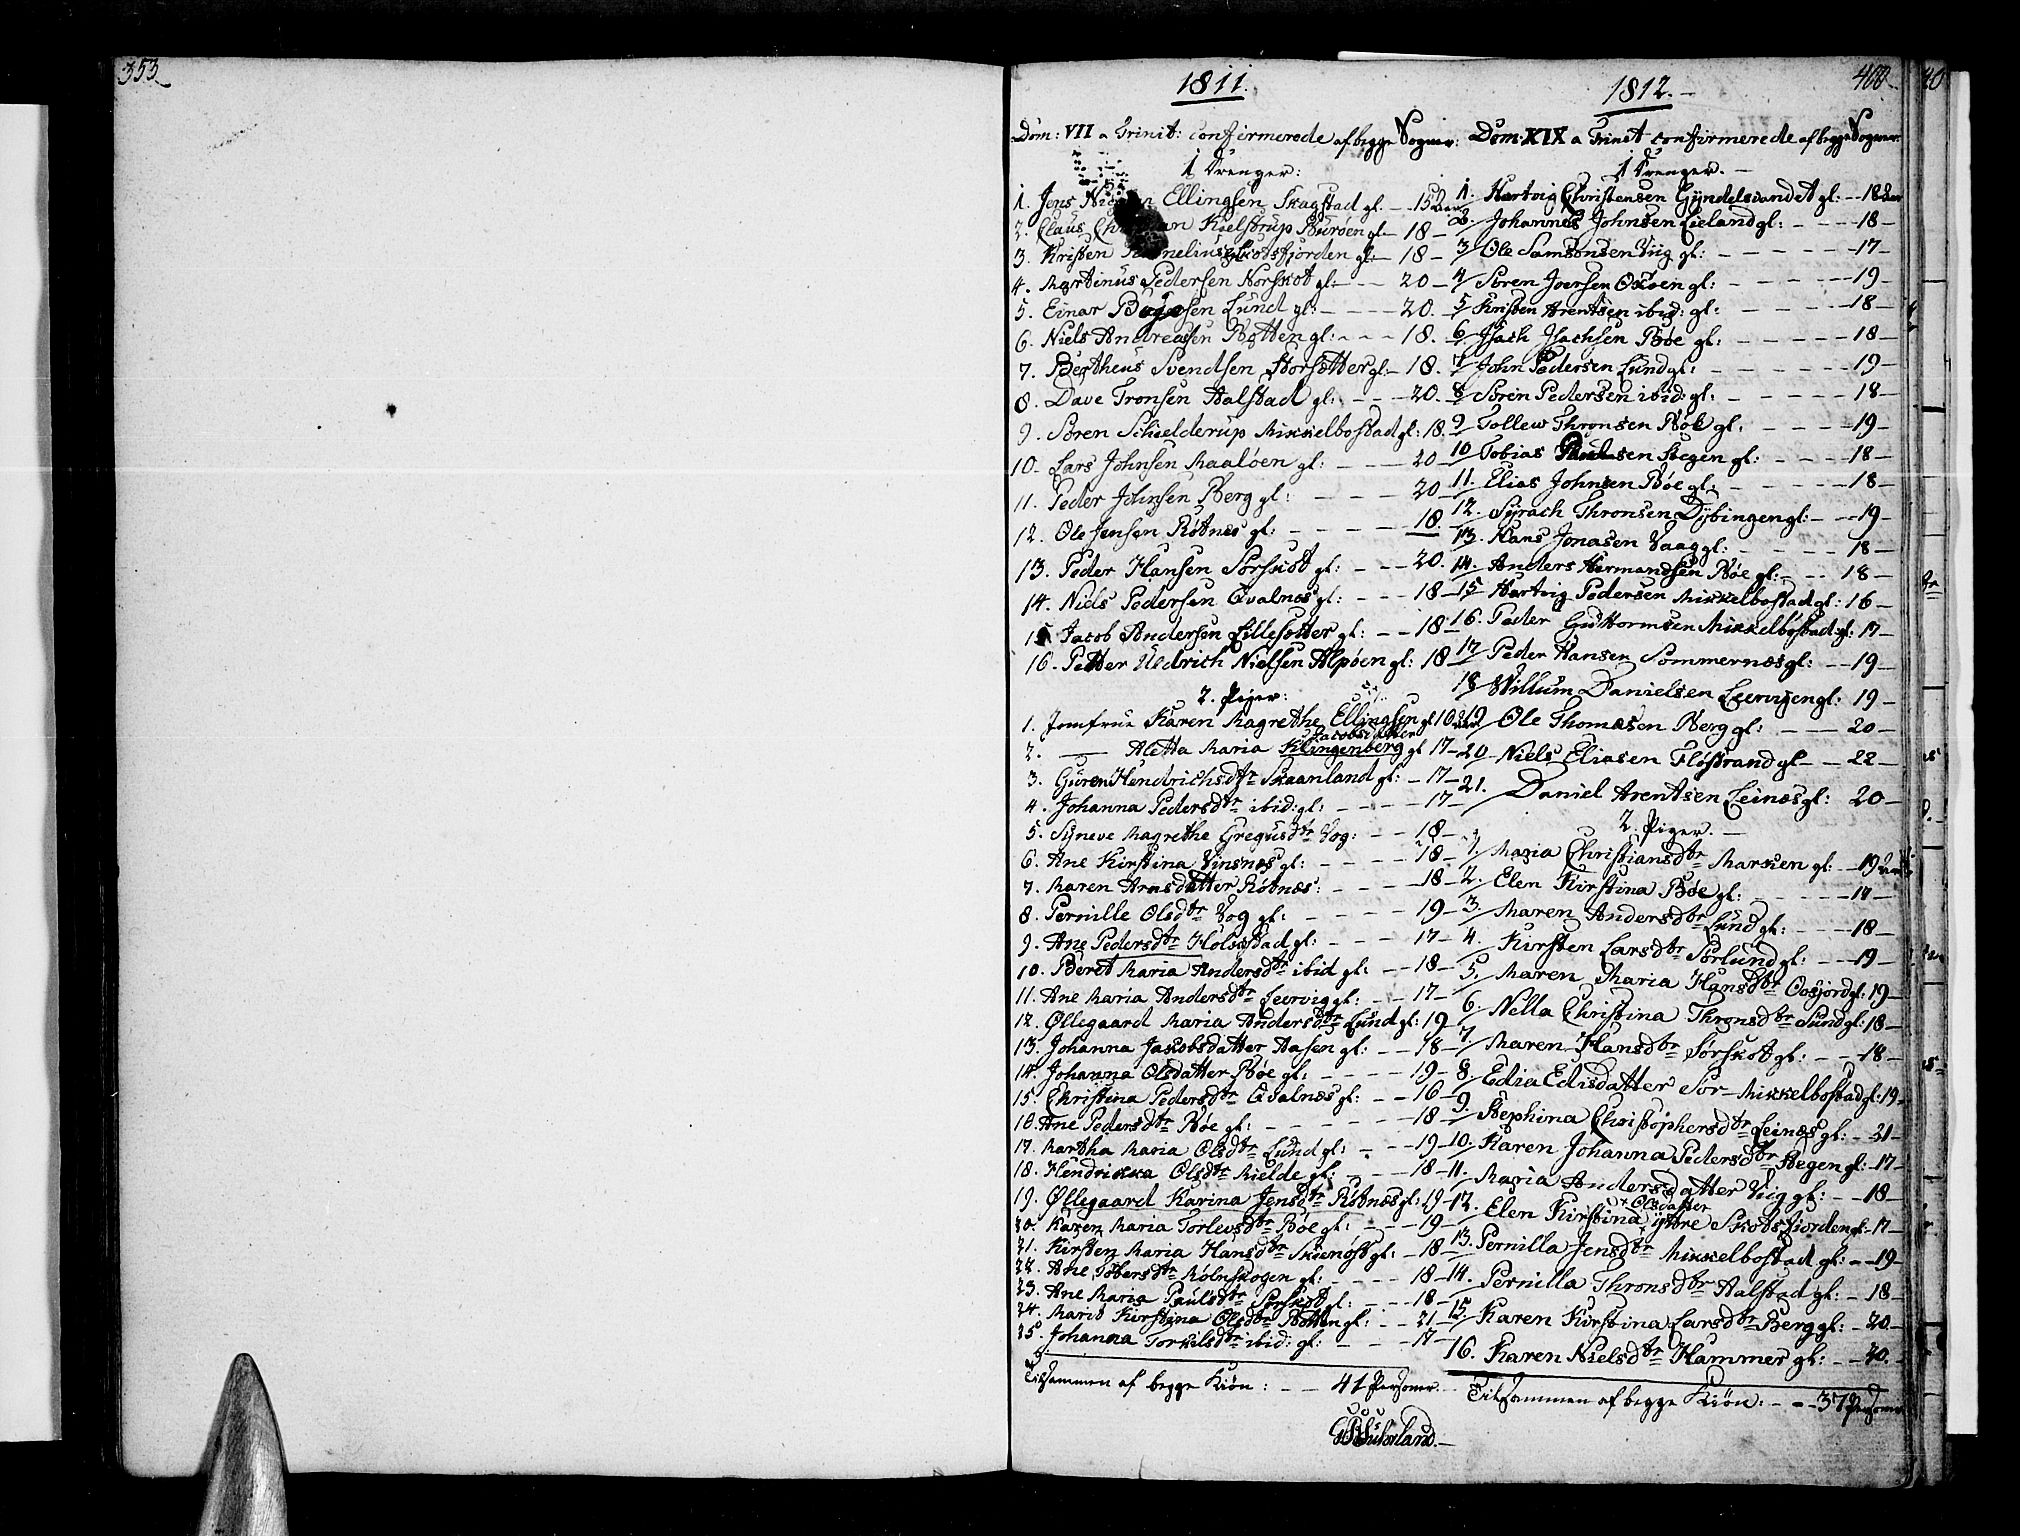 353
1811.
Dom: VII a Trinit: confirmerede af begge Sogner:
1 Drenger:
1. Jens Ellingsen Skagstad gl. — 15
2. Claus Kielstrup Burøen gl. — 18 —
3. Kristen Skotsfjorden gl: — 18 —
4. Martinus Pedersen Norskot gl: — — 20 —
5. Einar Lund gl: — — — — 20.
6. Niels Andreassen Botten gl: — — — 18.
7. Bertheus Svendsen Storsætter gl: — 18.
8. Dave Tronsen Aalstad gl: — — — 20.
9. Søren Schielderup Mikkelbostad gl: 18.
10. Lars Johnsen Maaløen gl: — — — 20
11. Peder Johnsen Berg gl: — — — 20
12. Ole Jensen Røtnæs gl: — — — — 18.
13. Peder Hansen Sørskot gl: — — — 20.
14. Niels Pedersen Qvalnæs gl: — — — 18
15 Jacob Andersen Lillesætter gl: — — 18
16. Petter Uldrich Nielsen Alpøen gl: 18
2. Piger:
1. Jomfrue Karen Magrethe Ellingsen gl 16
Jacobsdatter
2. —— Aletta Maria Klingenberg gl 17 —
3. Guren Hendrichsdtr Skaanland gl: — 17 —
4. Johanna Pedersdtr ibid: gl: — — — — 17 —
5. Syneve Magrethe Gregusdtr Vog: — — 18 —
6. Ane Kirstina Vinsnæs gl: — — — — 18 —
7. Maren Arnsdatter Røtnæs: — — — — 18 —
8. Pernille Olsdtr Vog gl: — — — — 19 —
9. Ane Pedersdtr Holvstad gl: — — — 17 —
10. Berit Maria Andersdtr ibid gl: — — 18 —
11. Ane Maria Andersdtr Leervig gl: — — 17 —
12. Øllegaard Maria Andersdtr Lund gl: 19 —
13. Johanna Jakobsdatter Aasen gl: — — 18 —
14. Johanna Olsdatter Bøe gl: — — — — 19 —
15. Christina Pedersdtr Qvalnæs gl: — — 16 —
16. Ane Pedersdtr Bøe gl: — — — — — 18
17. Martha Maria Olsdtr Lund gl: — — 19 —
18. Hendrikka Olsdtr Kielde gl: — — — 18 —
19. Øllegaard Karina Jensdtr Røtnæs gl: 19 —
20. Karen Maria Torlevsdtr Bøe gl: — — — 19 —
21. Kirsten Maria Hansdtr gl: — 18 —
22. Ane gl: — — — 18 —
23. Ane Maria Paulsdtr Sørskot gl: — — 18 —
24. Marit Kirstina Olsdtr Botten gl: — — 21
25. Johanna Torkelsdtr ibid: gl: — — — 17 —
Tilsammen af begge Kiøn: — — 41 Personer. —
1812. —
400
Dom: XIX a Trinit confirmerede af begge Sogner.
1 Drenger. —
1. Hartvig Christensen Gyndelsvandet gl: — 18
2. Johannes Johnsen Leland gl: — — — 18 —
3 Ole Samsonsen Viig gl: — — — — — 17 —
4 Søren Joersen gl: — — — — — 19 —
5 Kristen Arentsen ibid: gl: — — — — 18 —
6 Isach Isachsen Bøe gl: — — — — — 18 —
7 John Pedersen Lund gl: — — — — — 19 —
8 Søren Pedersen ibid: gl: — — — — — 18 —
9 Tollew Thronsen Bøe gl: — — — — 19 —
10 Tobias Stegen gl: — — — — 18 —
11. Elias Johnsen Bøe gl: — — — — — 18 —
12. Syrach Thronsen Dybingen gl: — — 19 —
13. Hans Jonasen Vaag gl: — — — — 18 —
14. Anders Hermandsen Bøe gl: — — — 18 —
15 Hartvig Pedersen Mikkelbostad gl: 16 —
16. Peder Guttormsen Mikkelbostad gl: 17 —
17 Peder Hansen Sommernæs gl: — — 19 —
18 Willum Danielsen Leervigen gl: 19 —
19 Ole Thomæsen Berg gl: — — — 20 —
20 Niels Eliasen Fløstrand gl — — 22 —
21. Daniel Arentsen Leines gl: 20 —
2. Piger. —
1. Maria Christiansdtr Marken gl: — 19
2. Elen Kirstina Bøe gl: — — — — 17 —
3. Maren Andersdtr Lund gl: — — — 18 —
4. Kirsten Larsdtr Sørlund gl: — — — 19 —
5. Maren Maria Hansdtr gl: 19 —
6. Nella Christina Thronsdtr Sund gl: 18 —
7 Maren Hansdtr Sørskot gl: — — — 18 —
8. Edia Edisdatter Sør Mikkelbostad gl: 19 —
9. Stephina Christophersdtr Leinæs gl: — 21 —
10. Karen Johanna Pedersdtr Hegen gl: — 17 —
11. Maria Andersdatter Viig gl: — — 18 —
+ Olsdatter
12. Elen Kirstina ytre Skotsfiorden gl: — 17 —
13. Pernilla Jensdtr Mikkelbostad gl: — — 19 —
14. Pernilla Thronsdtr Aalstad gl: — 18 —
15. Karen Kirstina Larsdtr Berg gl: — 20 —
16. Karen Nielsdtr Hammer gl: — — 20. —
Tilsammen af begge Kiøn: — — 37 Personer